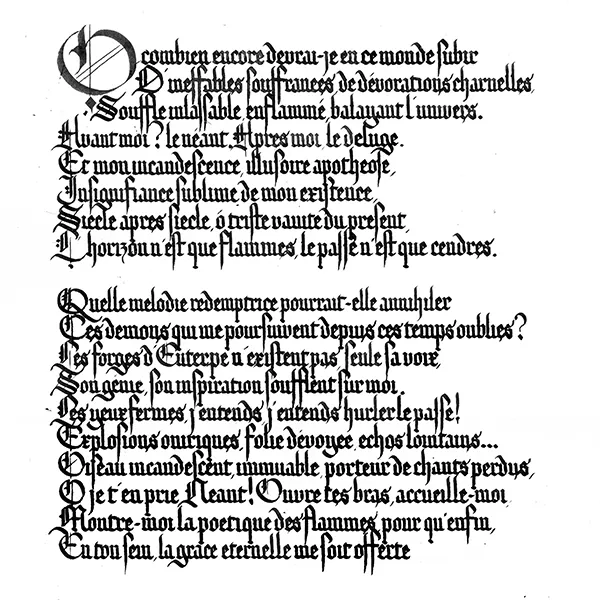 O combien encore devrai-je en ce monde subir
D'ineffables souffrances de dévorations charnelles,
Souffle inlassable, enflammé, balayant l'univers.
Avant moi? le néant, Apres moi, le deluge.
Et mon incandescence, illusoire apotheose,
Insignifiance sublime de mon existence,
Siecle apres siecle, ô triste vanité du present,
L'horizon n'est que flammes, le passé n'est que cendres.
Quelle melodie redemptrice pourrait-elle annihiler
Ces demons qui me poursuivent depuis ces temps oubliés?
Les forges d'Euterpe n'existent pas, seule sa voix,
Son genie, son inspiration soufflent sur moi,
Les yeux fermes, j'entends, j'entends hurler le passe!
Explosions oniriques, folie dévoyee, echos lointains...
Oiseau incandescent, immuable, porteur de chants perdus,
O je t'en prie, Neant! Ouvre tes bras, accueille-moi
Montre-moi la poetique des flammes, pour qu'enfin,
En ton sein, la grace eternelle me soit offerte